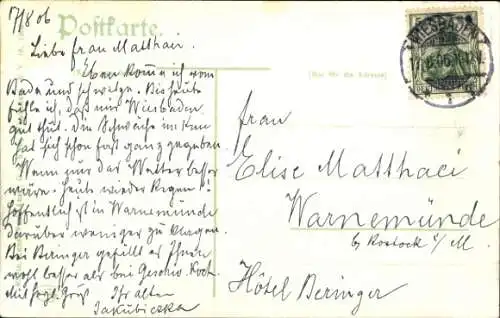 17/8 06
Postkarte.
Liebe Frau Matthaei.
Eben komme ich vom
Bade und schwelge. Bis heute
fühle ich, daß mir Wiesbaden
gut thut. Die Schwäche im Knie
hat sich schon fast ganz gegeben.
Wenn nur das Wetter besser
wäre. Heute wieder Regen!
Hoffentlich ist in Warnemünde
darüber weniger zu klagen.
Bei Beringer gefällt es Ihnen
wohl besser als bei Geschw. Koch.
Mit herzl. Gruß Ihr alter
Jakubiczka
(Nur für die Adresse)
WIESBADEN
Frau
Elise Matthaei
Warnemünde
by Rostock i/M.
Hôtel Beringer